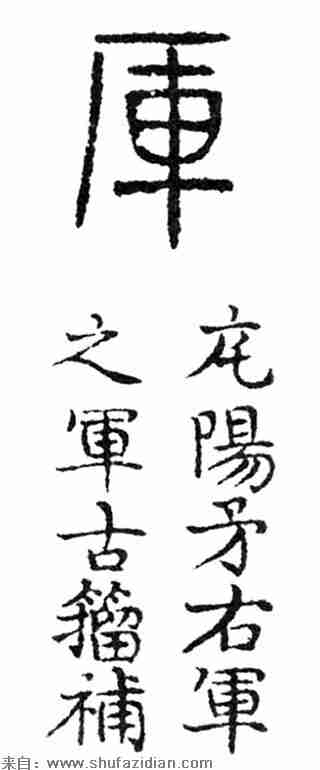 厙
㡯陽矛右軍
之軍古籀補
来自：www.shufazidian.com